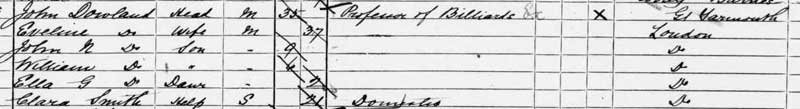 John Dowland Head M 35 Professor of Billiards &c X Gt Yarmouth
Eveline Do Wife M 37 London
John N Do Son - 9 Do
William Do " - 4 Do
Ella G Do Daur - 2 Do
Clara Smith Help S 21 Domestic Do